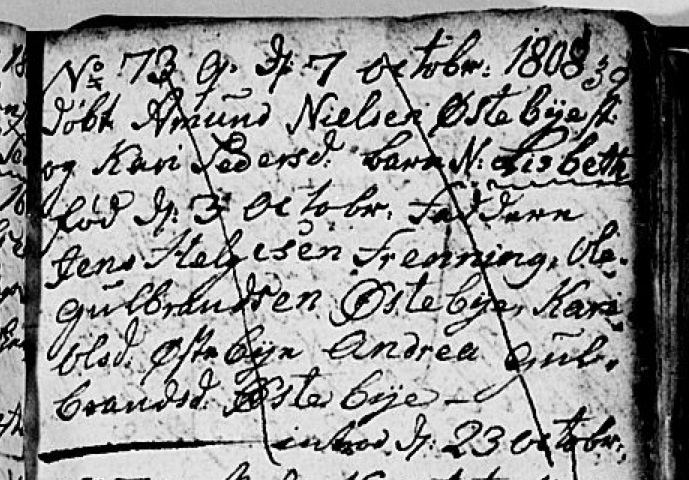 No 73 q. d: 7 octobr: 1808 39
døbt Amund Nielsen Østebÿe
og Kari Pedersd: barn N: Lisbeth
fød d: 3 octobr: faddere
Jens Helgesen Frenning, Ole
Gulbrandsen Østebÿe, Kari
Olsd. Østebÿe Andrea Gul-
brandsd: Østebÿe —
introd. d: 23 octobr.